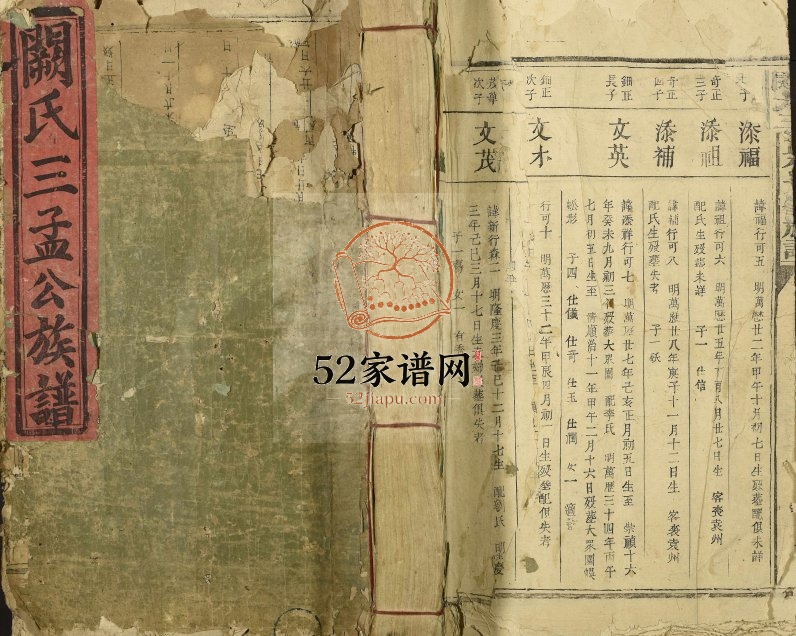 闕氏三孟公族譜
52家谱网
52jiapu.com
次子
奇正
三子
奇正
四子
細正
長子
細正
次子
次子
添福
添祖
添補
文英
文才
文茂
諱福行可五 明萬曆廿二年甲午十月初七日生歿墓配俱未詳
諱祖行可六 明萬曆廿五年丁酉八月廿七日生 客喪袁州
配氏生歿葬未詳 子一 仕信
諱補行可八 明萬曆廿八年庚子十一月十二日生 客喪袁州
配氏生歿墓失考 子一
諱添祥行可七 明萬曆廿七年己亥正月初五日生至 崇禎十六
年癸未九月初三日歿葬大眾圖 配李氏 明萬曆三十四年丙午
七月初五日生至 清順治十一年甲午二月十六日歿葬大眾圖
子四 仕儀 仕奇 仕玉 仕潤 女一
行可十 明萬曆三十二年甲辰四月初一日生歿葬配俱失考
諱新行森二 明隆慶三年己巳十二月十七生 配 氏 明隆慶
三年己巳三月十七日生 墓俱失考
子一 女一